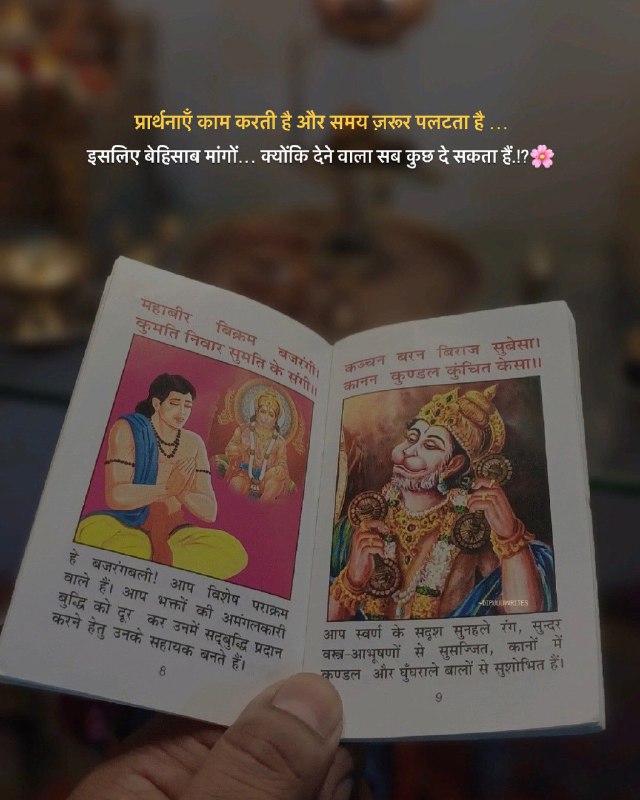 प्रार्थनाएँ काम करती है और समय ज़रूर पलटता है ...
इसलिए बेहिसाब मांगों... क्योंकि देने वाला सब कुछ दे सकता हैं.!?🌸
महाबीर बिक्रम बजरंगी।
कुमति निवार सुमति के संगी।।
हे बजरंगबली! आप विशेष पराक्रम
वाले हैं। आप भक्तों की अमंगलकारी
बुद्धि को दूर कर उनमें सद्बुद्धि प्रदान
करने हेतु उनके सहायक बनते हैं।
8
कञ्चन बरन बिराज सुबेसा।
कानन कुण्डल कुंचित केसा।।
~DIPUUUWRITES
आप स्वर्ण के सदृश सुनहले रंग, सुन्दर
वस्त्र-आभूषणों से सुसज्जित, कानों में
कुण्डल और घुँघराले बालों से सुशोभित हैं।
9